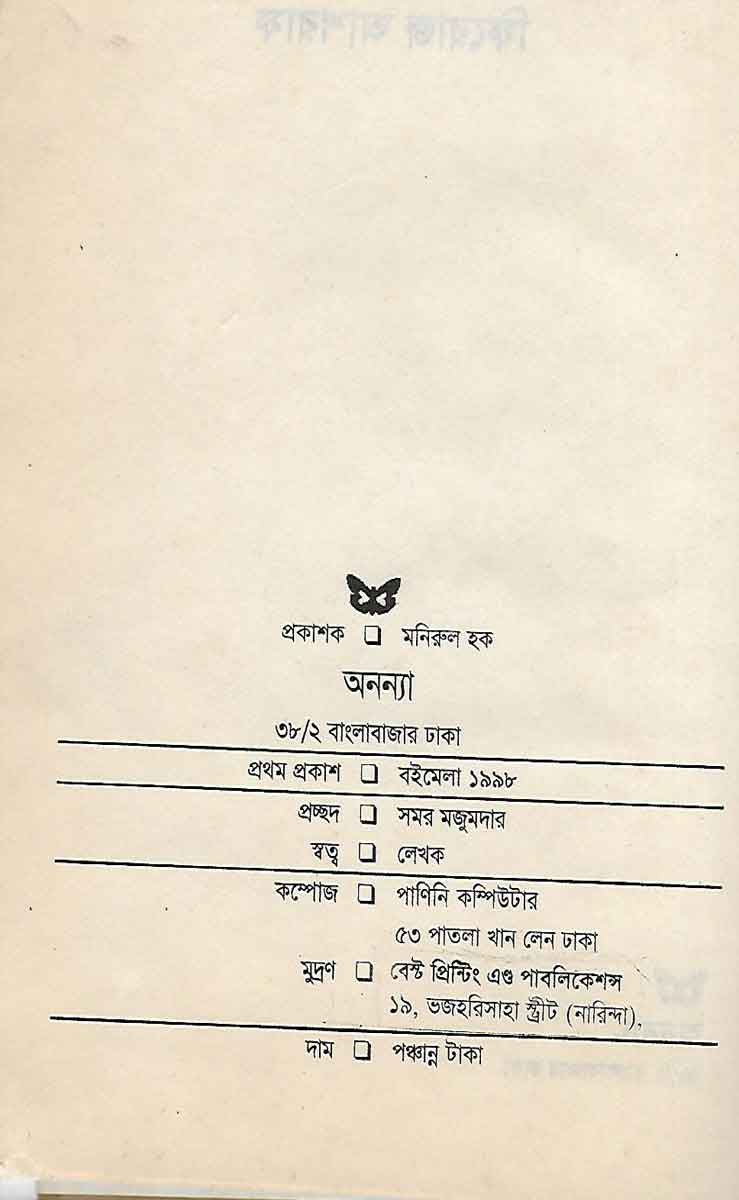 প্রকাশক ❏ মনিরুল হক
অনন্যা
৩৮/২ বাংলাবাজার ঢাকা
প্রথম প্রকাশ ❏ বইমেলা ১৯৯৮
প্রচ্ছদ ❏ সমর মজুমদার
স্বত্ব ❏ লেখক
কম্পোজ ❏ পাণিনি কম্পিউটার
৫৩ পাতলা খান লেন ঢাকা
মুদ্রণ ❏ বেস্ট প্রিন্টিং এণ্ড পাবলিকেশন্স
১৯, ভজহরিসাহা স্ট্রীট (নারিন্দা),
দাম ❏ পঞ্চান্ন টাকা